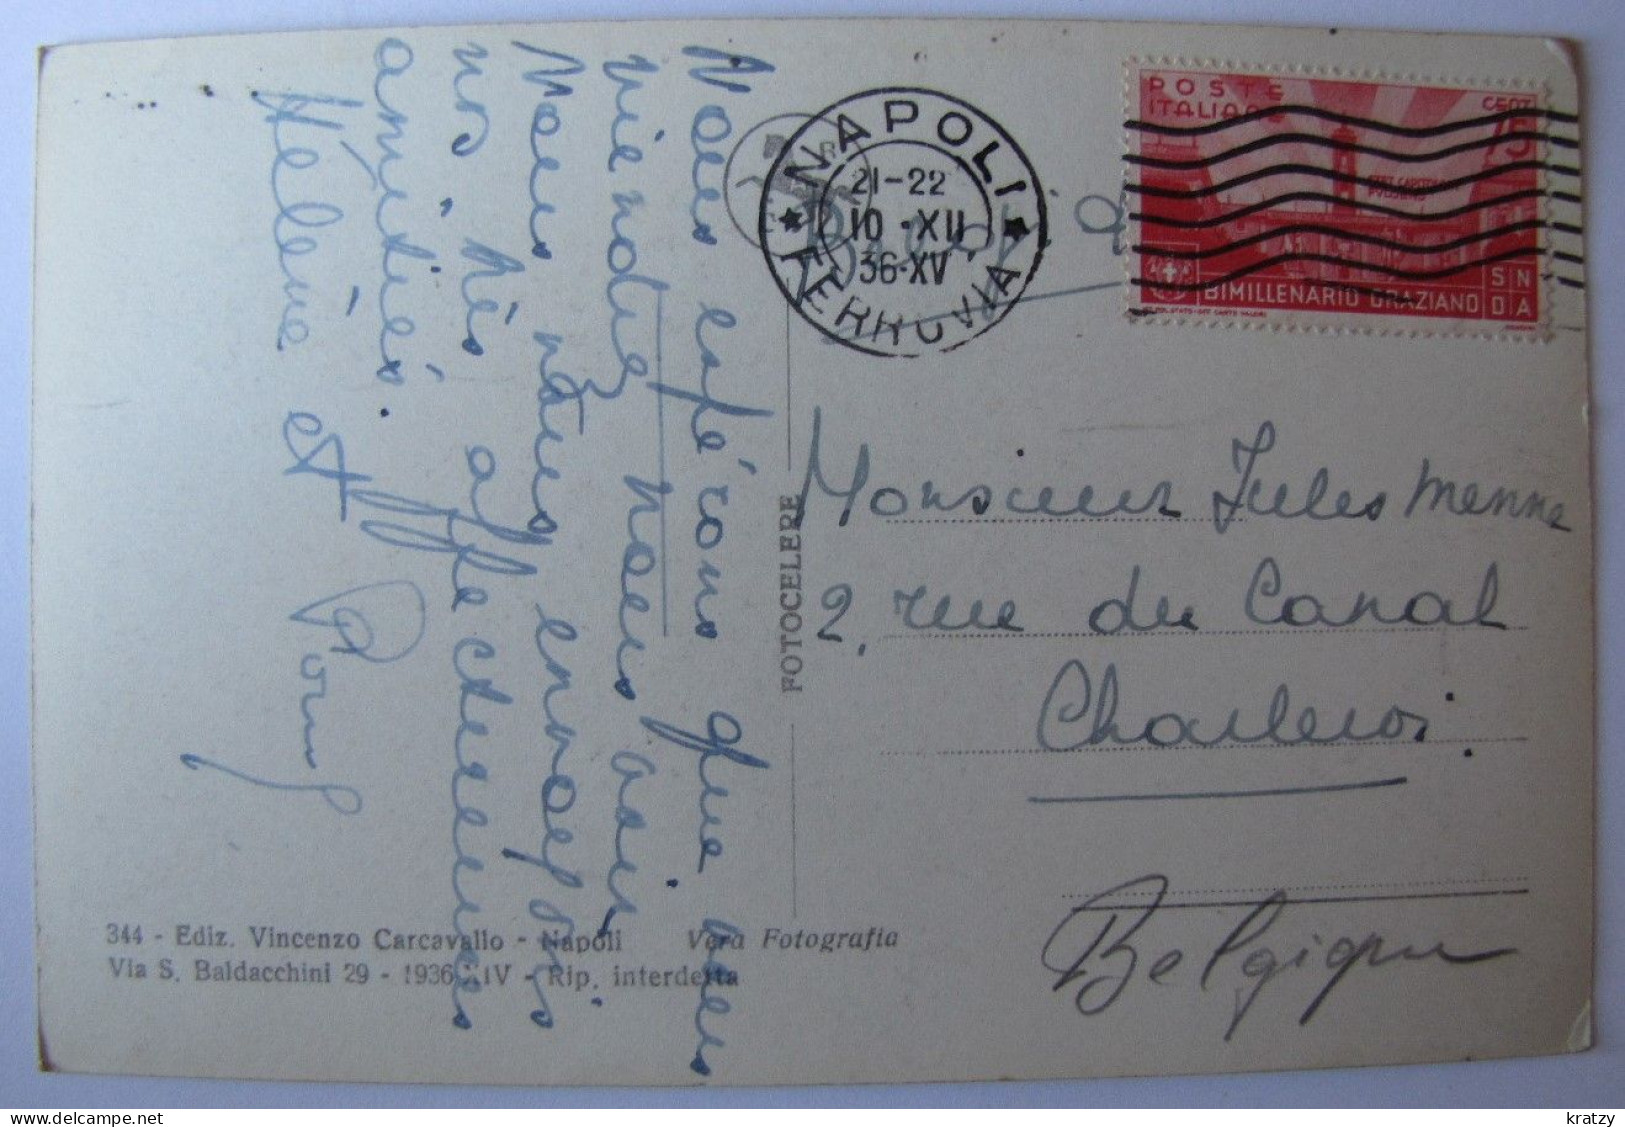 Nous espérons que vous
viendrez nous voir,
Nous vous envoyons
nos très affectueuses
amitiés.
Hélène et
NAPOLI
FERROVIA
21-22
10-XII
36-XV
POSTE
ITALIANE
CENT
75
BIMILLENARIO ORAZIANO
FOTOCELERE
Monsieur Jules Menne
2, rue du Canal
Charleroi.
Belgique
344 - Ediz. Vincenzo Carcavallo - Napoli Vera Fotografia
Via S. Baldacchini 29 - 1936-XIV - Rip. interdetta
kratzy